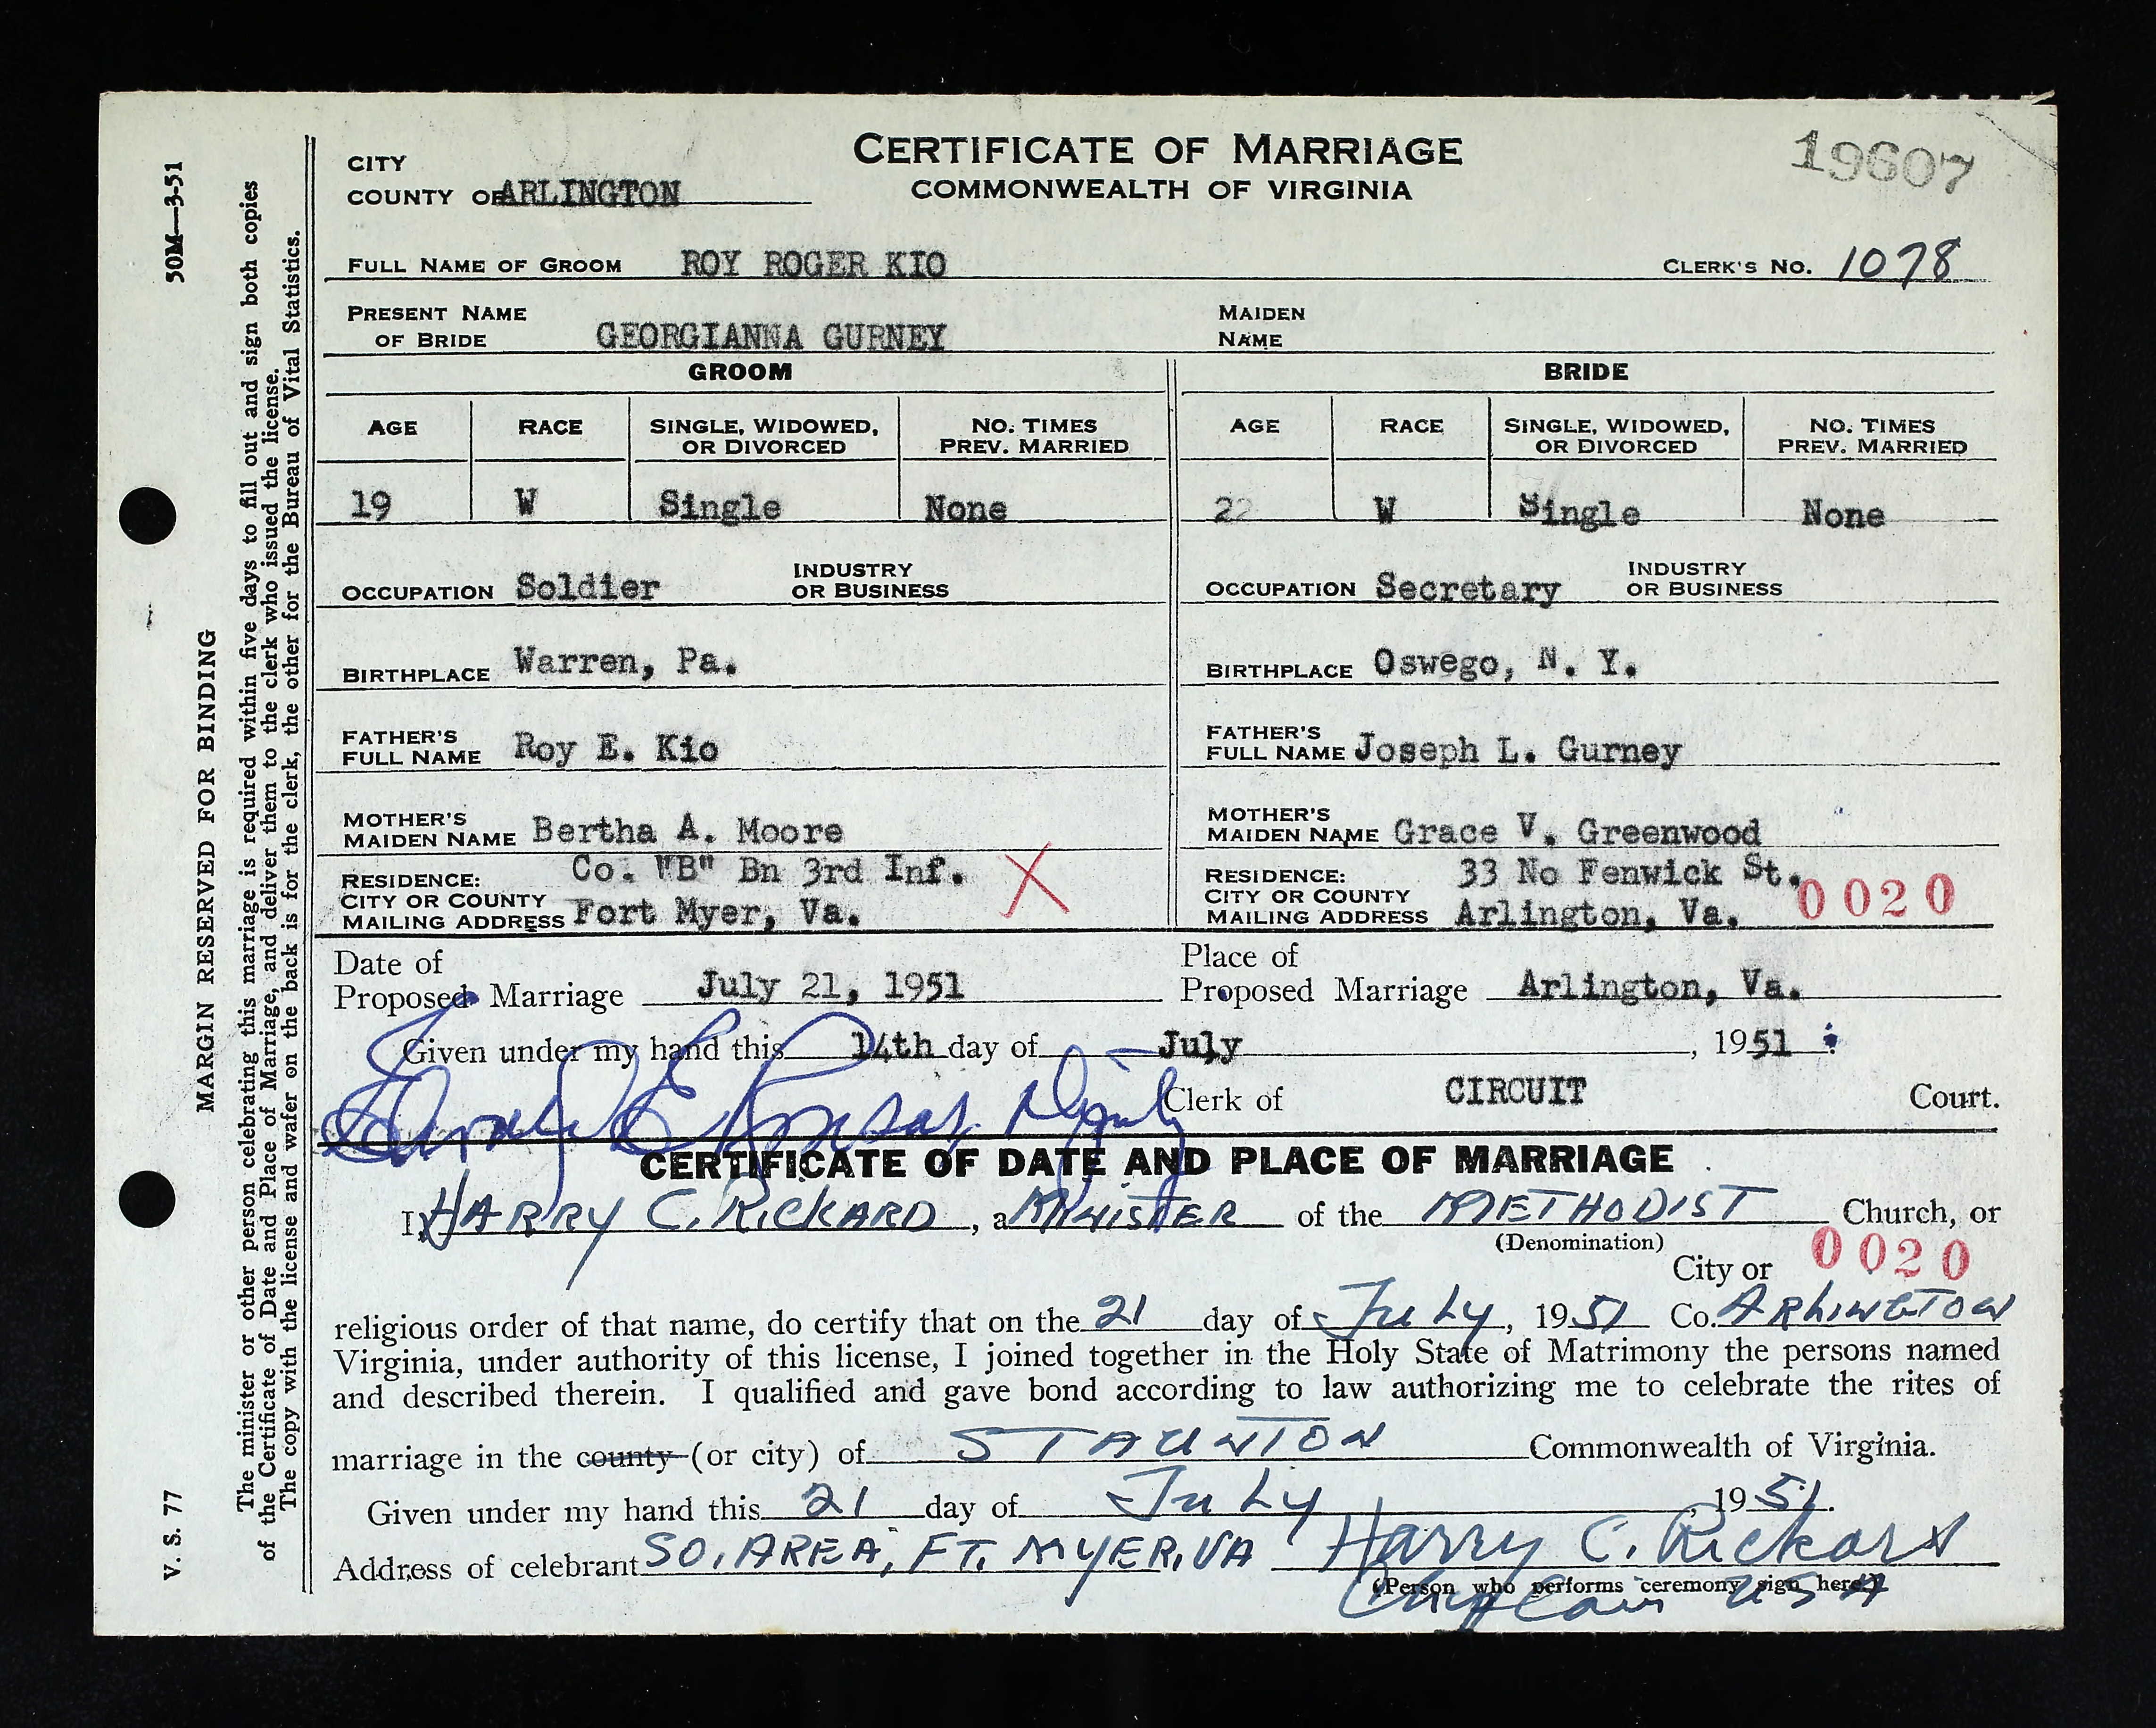 CERTIFICATE OF MARRIAGE
COMMONWEALTH OF VIRGINIA
19607
CITY
COUNTY OF ARLINGTON
FULL NAME OF GROOM ROY ROGER KIO CLERK'S NO. 1078
PRESENT NAME OF BRIDE GEORGIANNA GURNEY MAIDEN NAME
GROOM BRIDE
AGE RACE SINGLE, WIDOWED, OR DIVORCED NO. TIMES PREV. MARRIED AGE RACE SINGLE, WIDOWED, OR DIVORCED NO. TIMES PREV. MARRIED
19 W Single None 22 W Single None
OCCUPATION Soldier INDUSTRY OR BUSINESS OCCUPATION Secretary INDUSTRY OR BUSINESS
BIRTHPLACE Warren, Pa. BIRTHPLACE Oswego, N. Y.
FATHER'S FULL NAME Roy E. Kio FATHER'S FULL NAME Joseph L. Gurney
MOTHER'S MAIDEN NAME Bertha A. Moore MOTHER'S MAIDEN NAME Grace V. Greenwood
RESIDENCE: Co. "B" Bn 3rd Inf. X RESIDENCE: 33 No Fenwick St.
CITY OR COUNTY MAILING ADDRESS Fort Myer, Va. CITY OR COUNTY MAILING ADDRESS Arlington, Va. 0020
Date of Proposed Marriage July 21, 1951 Place of Proposed Marriage Arlington, Va.
Given under my hand this 14th day of July, 1951.
Deputy Clerk of CIRCUIT Court.
CERTIFICATE OF DATE AND PLACE OF MARRIAGE
I, HARRY C. RICKARD, a MINISTER of the METHODIST Church, or
(Denomination)
City or 0020
religious order of that name, do certify that on the 21 day of July, 1951 Co. ARLINGTON
Virginia, under authority of this license, I joined together in the Holy State of Matrimony the persons named
and described therein. I qualified and gave bond according to law authorizing me to celebrate the rites of
marriage in the county (or city) of STAUNTON Commonwealth of Virginia.
Given under my hand this 21 day of July, 1951.
Address of celebrant SO. AREA, FT. MYER, VA Harry C. Rickard
(Person who performs ceremony sign here.)
Chaplain USA
50M—3-51
MARGIN RESERVED FOR BINDING
V. S. 77
The minister or other person celebrating this marriage is required within five days to fill out and sign both copies
of the Certificate of Date and Place of Marriage, and deliver them to the clerk who issued the license.
The copy with the license and wafer on the back is for the clerk, the other for the Bureau of Vital Statistics.